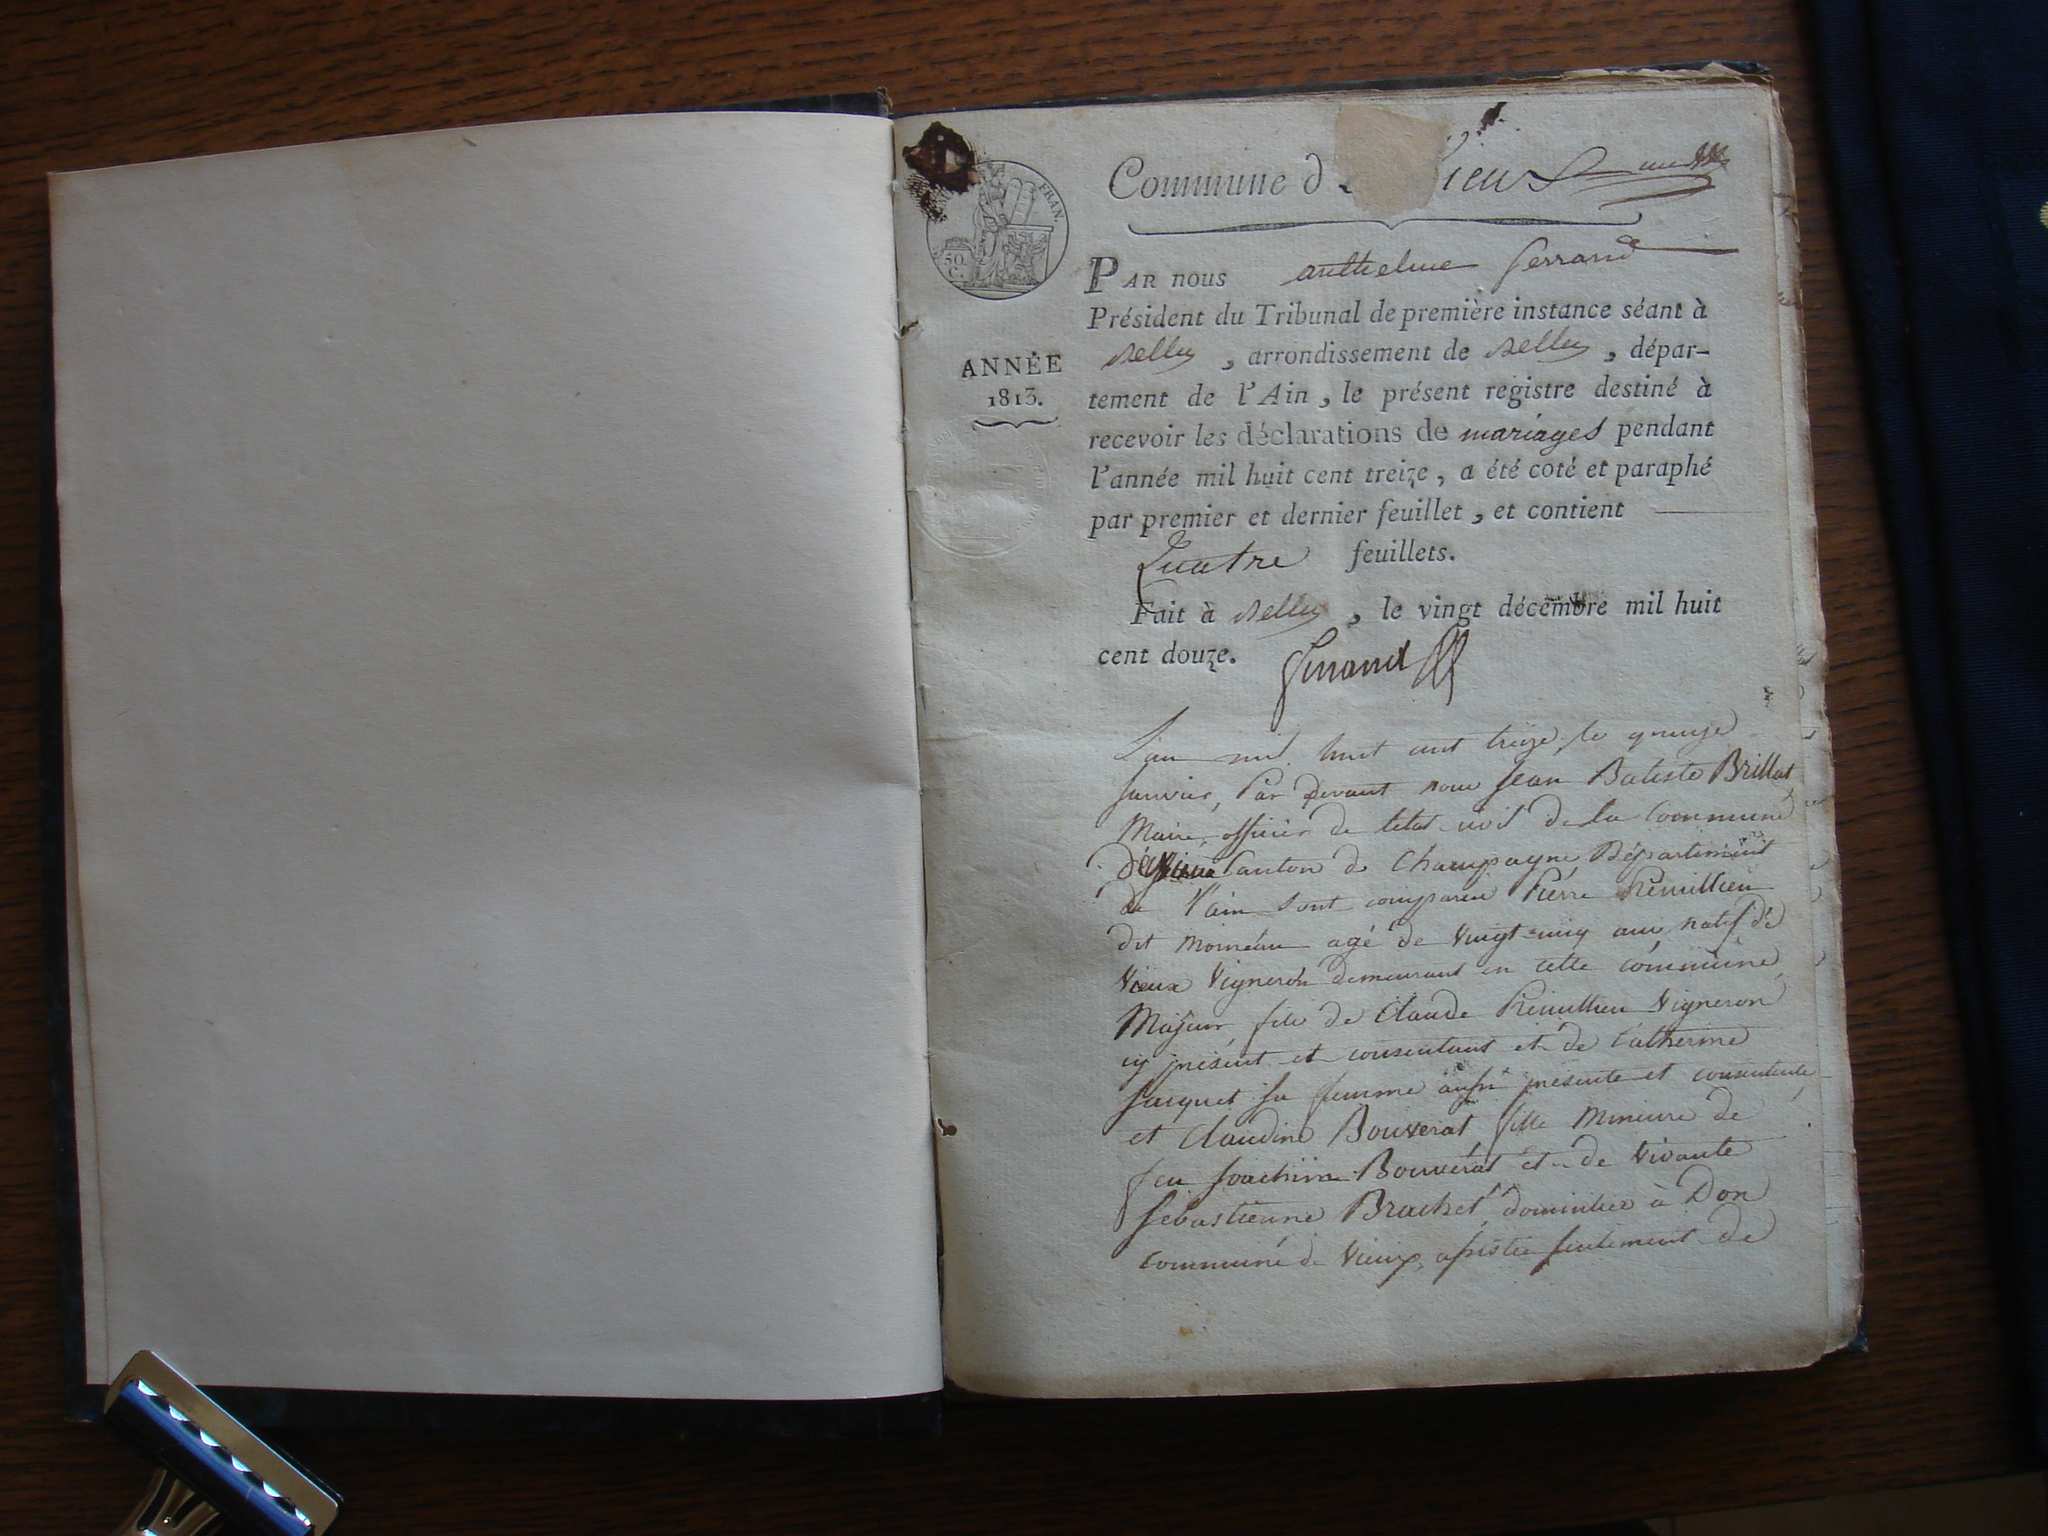 Commune d ieu
FRAN.
50
C.
PAR NOUS anthelme ferrand
Président du Tribunal de première instance séant à
Belley, arrondissement de Belley, dépar-
ANNÉE
1813.
tement de l'Ain, le présent registre destiné à
recevoir les déclarations de mariages pendant
l'année mil huit cent treize, a été coté et paraphé
par premier et dernier feuillet, et contient
Quatre feuillets.
Fait à Belley, le vingt décembre mil huit
cent douze. ferrand
L'an mil huit cent treize, le quinze
Janvier, Par Devant nous Jean Batiste Brillat
Maire, officier de l'état civil de la Commune
Canton de Champagne Département
de l'ain sont comparu Pierre
dit Moineau agé de Vingt-cinq ans natif de
Vieux Vigneron demeurant en cette commune
Majeur, fils de Claude Vigneron
cy présent et consentant et de Catherine
Jacquet sa femme aussi présente et consentente
et Claudine Bouverat fille Mineure de
feu Joachim Bouvérat et de Vivante
Sebastienne Brachet, domiciliée à Don
communé de Vieux, assistée seulement de